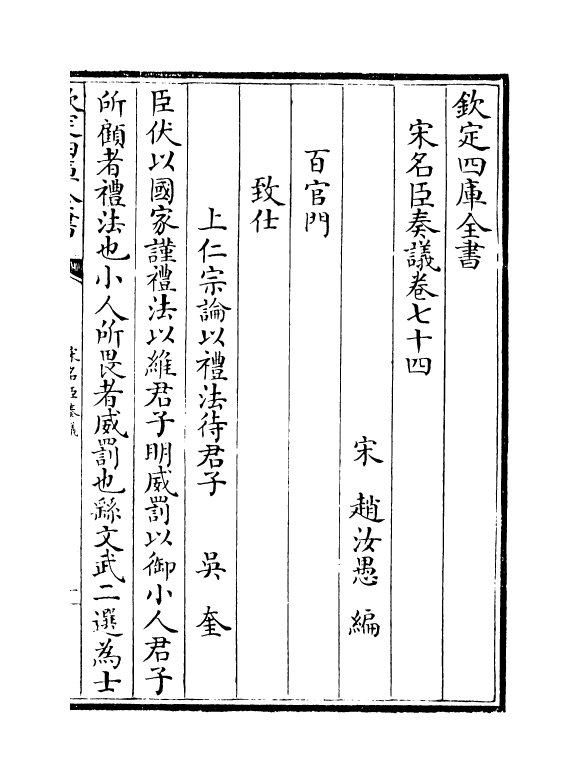 欽定四庫全書
宋名臣奏議卷七十四
宋　趙汝愚　編
百官門
致仕
上仁宗論以禮法待君子　吳奎
臣伏以國家謹禮法以維君子明威罰以御小人君子
所顧者禮法也小人所畏者威罰也繇文武二選為士
欽定四庫全書
宋名臣奏議